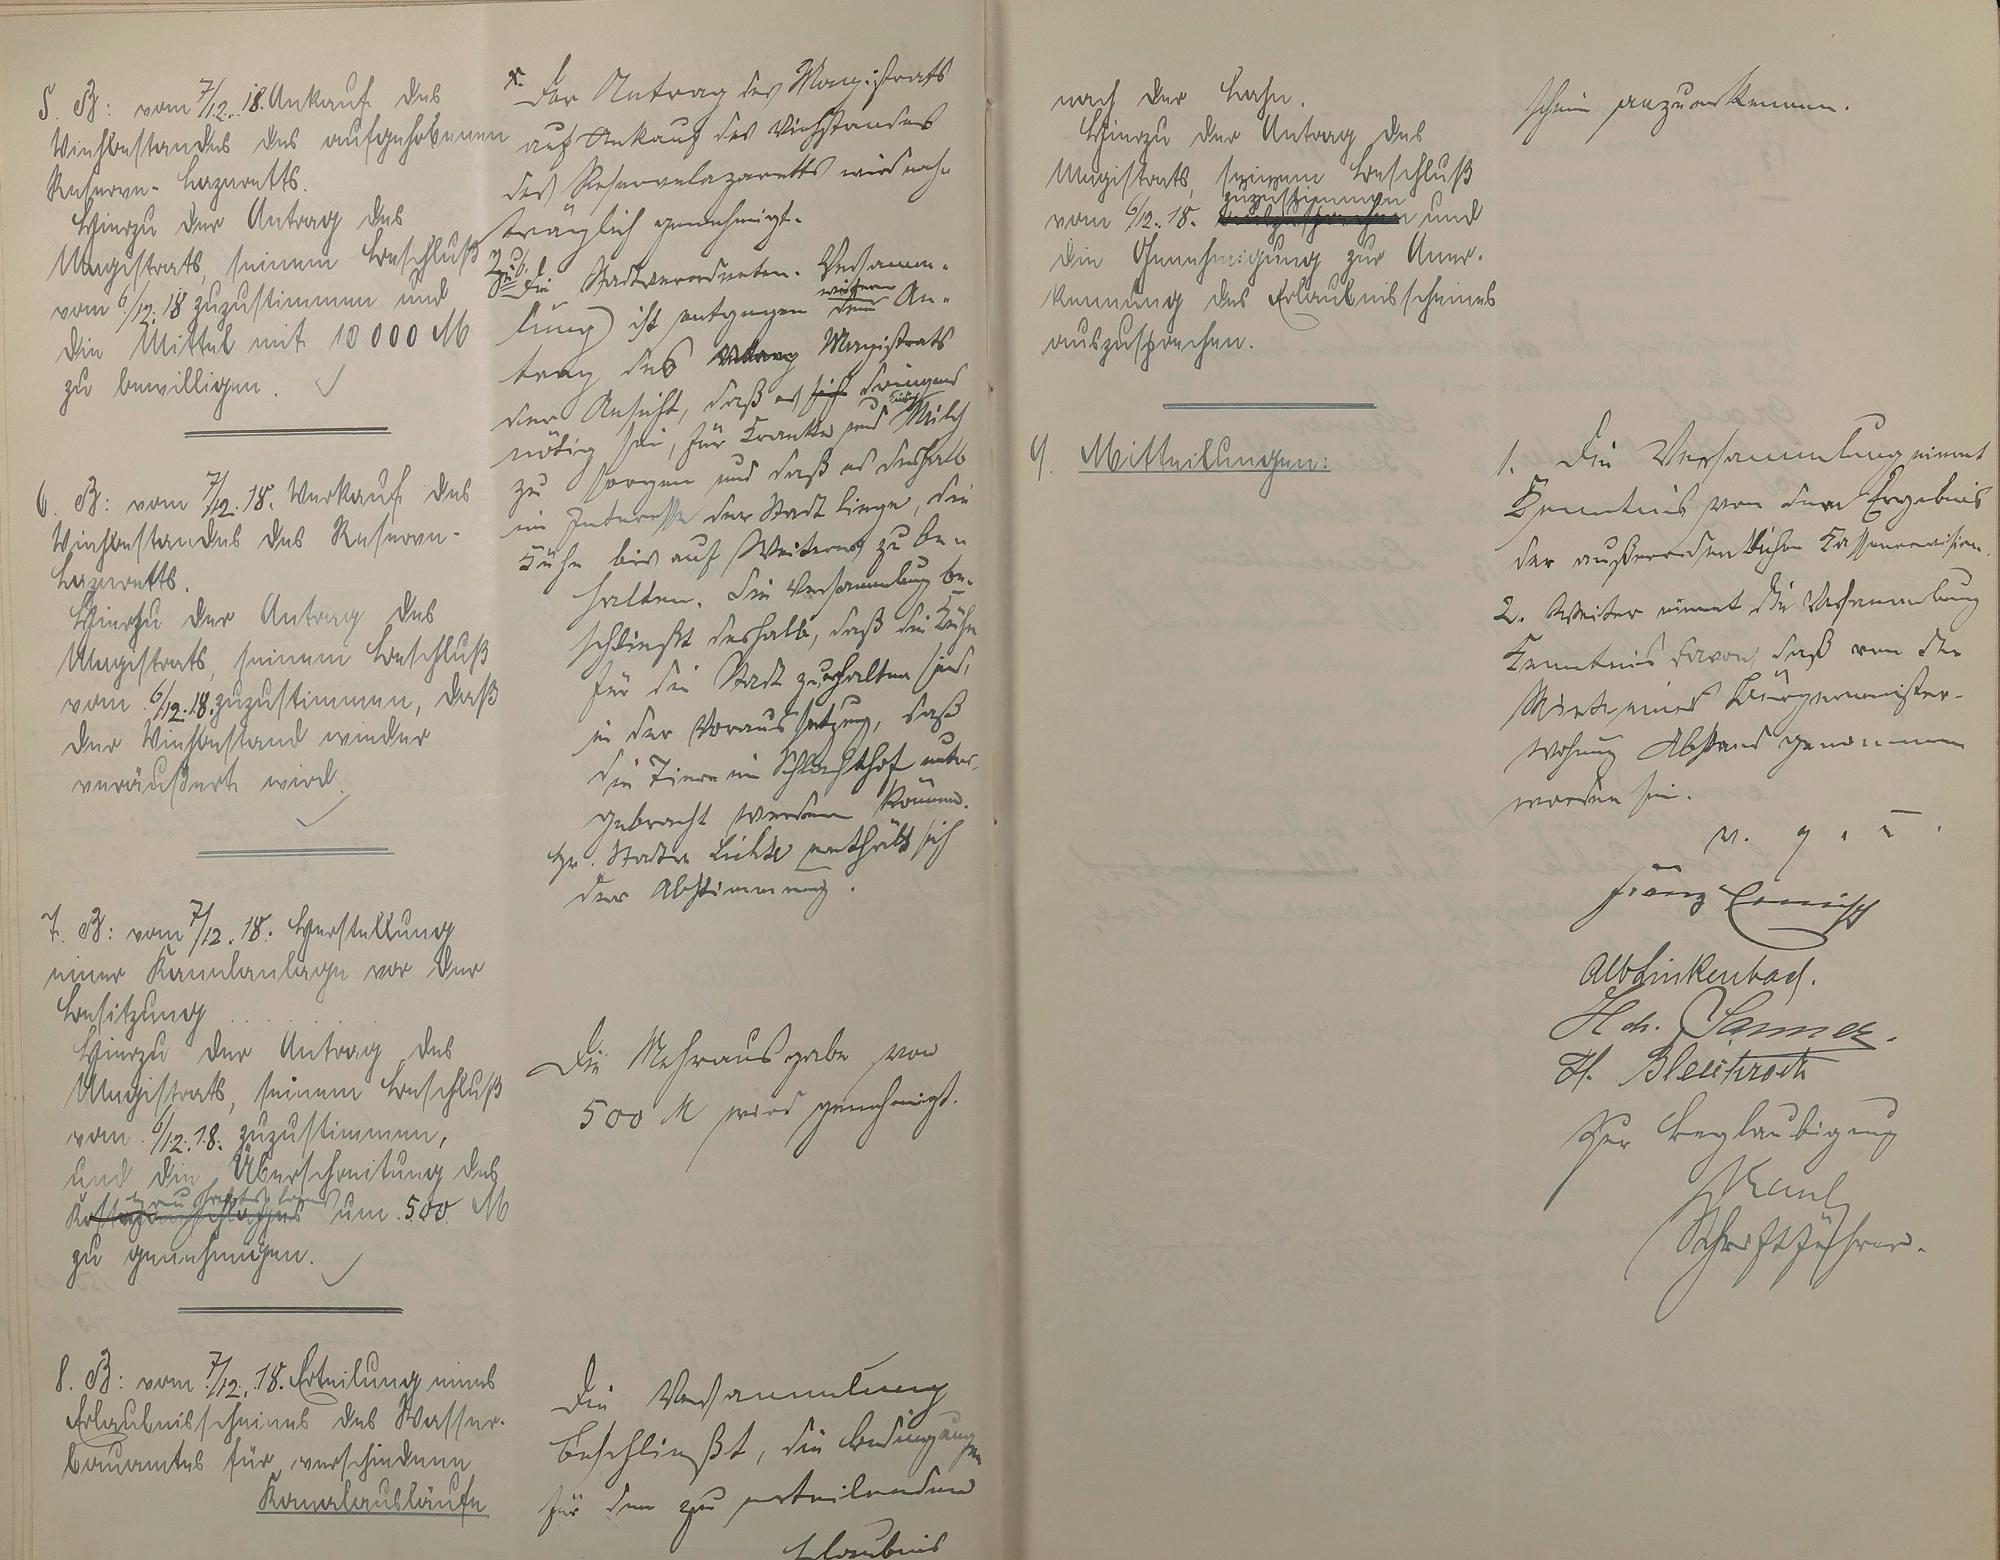 5. B: vom 7/12. 18. Ankauf des
Viehbestandes des aufgehobenen
Reserve-Lazaretts.
Hierzu der Antrag des
Magistrats, seinem Beschluß
vom 6/12. 18 zuzustimmen und
die Mittel mit 10 000 M
zu bewilligen.
6. B: vom 7/12. 18. Verkauf des
Viehbestandes des Reserve-
Lazaretts.
Hierzu der Antrag des
Magistrats, seinem Beschluß
vom 6/12. 18. zuzustimmen, daß
der Viehbestand wieder
veräußert wird.
7. B: vom 7/12. 18. Herstellung
einer Kanalanlage vor der
Besitzung . . . . . .
Hierzu der Antrag des
Magistrats, seinem Beschluß
vom 6/12. 18. zuzustimmen,
und die Überschreitung des
Haushaltsplans
Kostenanschlages um 500 M
zu genehmigen.
8. B: vom 7/12. 18. Erteilung eines
Erlaubnisscheines des Wasser-
bauamtes für verschiedene
Kanalausläufe
x. Der Antrag des Magistrats
auf Ankauf des Viehstandes
des Reservelazaretts wird nach-
träglich genehmigt.
Zu 6.
Die Stadtverordneten-Versamm-
lung ist entgegen dem weitern An-
trag des Magistrats
der Ansicht, daß es sich dringend
nötig sei, für Kranke und Kinder Milch
zu sorgen und daß es deshalb
im Interesse der Stadt liege, die
Kühe bis auf Weiteres zu be-
halten. Die Versammlung be-
schließt deshalb, daß die Kühe
für die Stadt zu erhalten sind,
in der Voraussetzung, daß
die Tiere im Schlachthof unter-
gebracht werden können.
Hr. Stadtv. Lichte enthält sich
der Abstimmung.
Die Mehrausgabe von
500 M wird genehmigt.
Die Versammlung
beschließt, die Bedingungen
für den zu erteilenden
Erlaubnis
nach der Lahn.
Hierzu der Antrag des
Magistrats, seinem Beschluß
zuzustimmen
vom 6/12. 18. und
die Genehmigung zur Aner-
kennung des Erlaubnisscheines
auszusprechen.
9. Mitteilungen:
schein anzuerkennen.
1. Die Versammlung nimmt
Kenntnis von dem Ergebnis
der außerordentlichen Kassenrevision.
2. Weiter nimmt die Versammlung
Kenntnis davon, daß von der
Miete eines Bürgermeister-
wohnung Abstand genommen
worden sei.
v. g. u.
Franz
Alb Linkenbach.
Hch. Sanner.
H. Bleichroth
Zur Beglaubigung
Schriftführer.